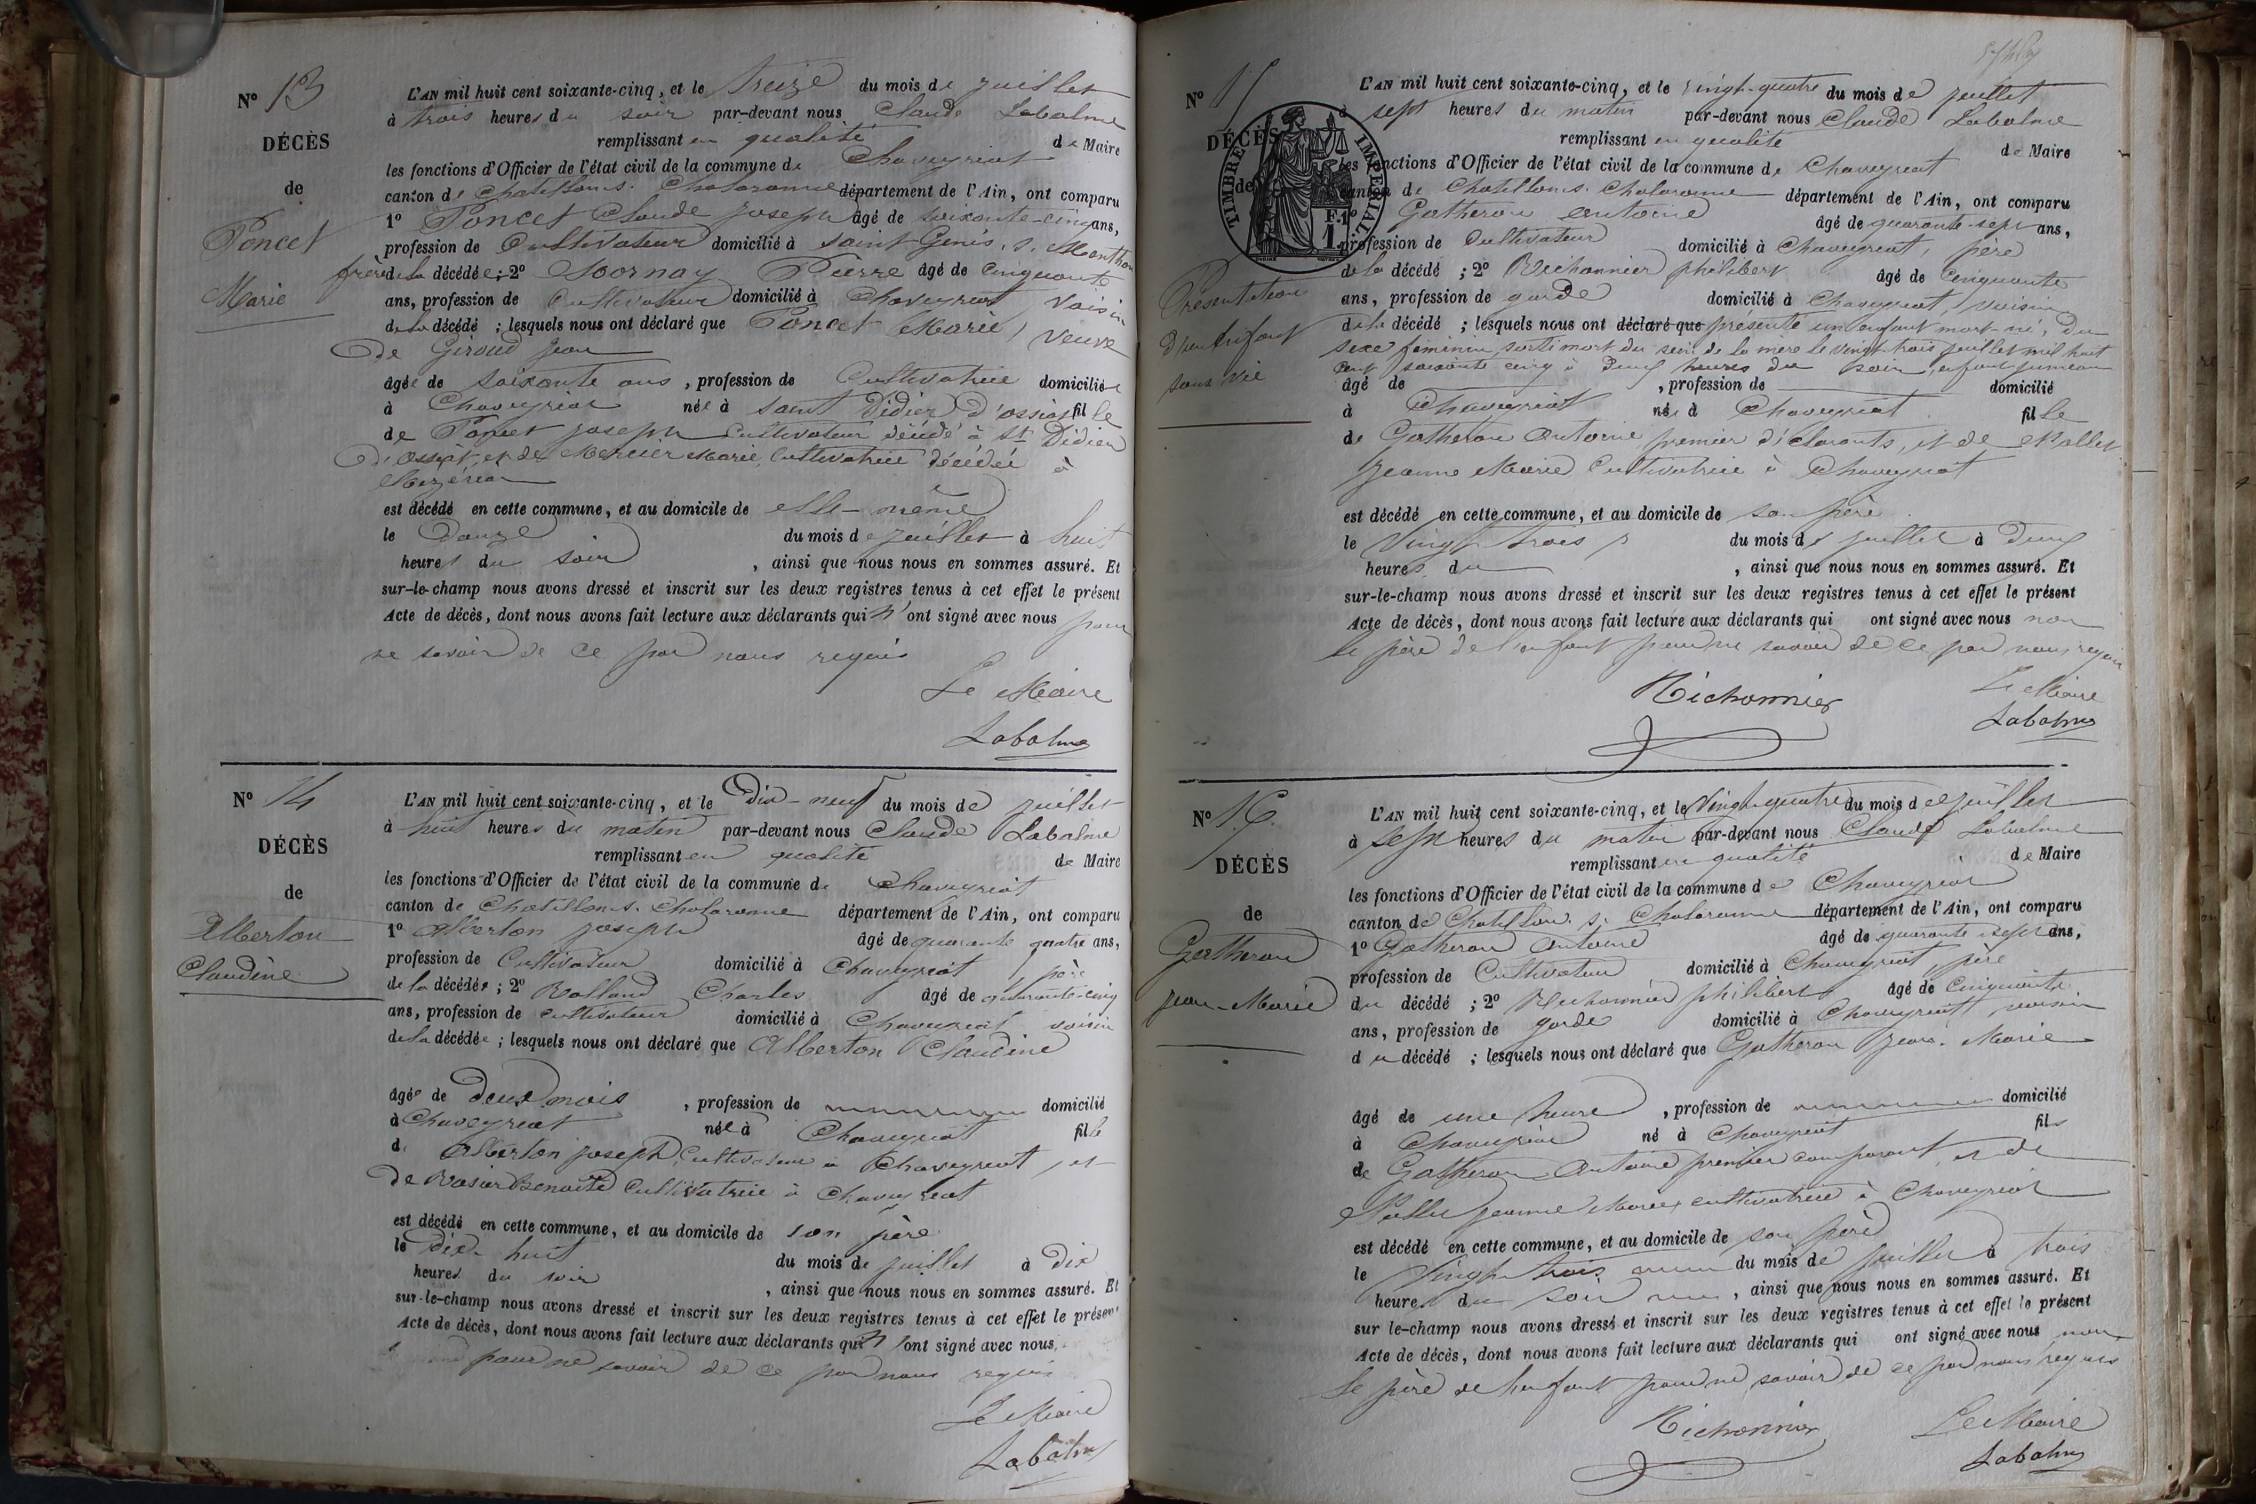 Nº 13
DÉCÈS
de
Poncet
Marie
L'AN mil huit cent soixante-cinq, et le treize du mois de juillet
à trois heures du soir par-devant nous Claude Labalme
remplissant en qualité de Maire
les fonctions d'Officier de l'état civil de la commune de Chaveyriat
canton de Chatillon s. Chalaronne département de l'Ain, ont comparu
1º Poncet Claude Joseph âgé de soixante-cinq ans,
profession de Cultivateur domicilié à Saint Genis s. Menthon
frère de la décédée; 2º Mornay Pierre âgé de cinquante
ans, profession de Cultivateur domicilié à Chaveyriat voisin
de la décédé ; lesquels nous ont déclaré que Poncet Marie, veuve
de Giroud Jean
âgée de soixante ans, profession de Cultivatrice domiciliée
à Chaveyriat née à saint Didier d'ossiat fille
de Poncet joseph Cultivateur décédé à St Didier
d'ossiat et de Mercier Marie Cultivatrice décédée à
Mezériat
est décédé en cette commune, et au domicile de elle-même
le Douze du mois de juillet à huit
heures du soir , ainsi que nous nous en sommes assuré. Et
sur-le-champ nous avons dressé et inscrit sur les deux registres tenus à cet effet le présent
Acte de décès, dont nous avons fait lecture aux déclarants qui n'ont signé avec nous pour
ne savoir de ce par nous requis
Le Maire
Labalme
Nº 14
DÉCÈS
de
Alberton
Claudine
L'AN mil huit cent soixante-cinq, et le dix-neuf du mois de juillet
à huit heures du matin par-devant nous Claude Labalme
remplissant en qualité de Maire
les fonctions d'Officier de l'état civil de la commune de Chaveyriat
canton de Chatillon s. Chalaronne département de l'Ain, ont comparu
1º Alberton joseph âgé de quarante quatre ans,
profession de Cultivateur domicilié à Chaveyriat, père
de la décédée; 2º Rolland Charles âgé de quarante-cinq
ans, profession de cultivateur domicilié à Chaveyriat voisin
de la décédée; lesquels nous ont déclaré que Alberton Claudine
âgée de deux mois , profession de domicilié
à Chaveyriat née à Chaveyriat fille
de Alberton joseph, Cultivateur à Chaveyriat, et
de Benoite Cultivatrice à Chaveyriat
est décédé en cette commune, et au domicile de son père
le dix huit du mois de juillet à dix
heures du soir , ainsi que nous nous en sommes assuré. Et
sur-le-champ nous avons dressé et inscrit sur les deux registres tenus à cet effet le présent
Acte de décès, dont nous avons fait lecture aux déclarants qui n'ont signé avec nous,
pour ne savoir de ce par nous requis
Le Maire
Labalme
Nº 15
DÉCÈS
de
TIMBRE IMPÉRIAL
1 F.
Présentation
d'un Enfant
sans vie
L'AN mil huit cent soixante-cinq, et le vingt-quatre du mois de juillet
à sept heures du matin par-devant nous Claude Labalme
remplissant en qualité de Maire
les fonctions d'Officier de l'état civil de la commune de Chaveyriat
canton de Chatillon s. Chalaronne département de l'Ain, ont comparu
1º Gatheron Antoine âgé de quarante-sept ans,
profession de Cultivateur domicilié à Chaveyriat, père
de la décédé ; 2º Richonnier philibert âgé de Cinquante
ans, profession de garde domicilié à Chaveyriat, voisin
de la décédé ; lesquels nous ont déclaré que présenté un enfant mort-né, du
sexe féminin sorti mort du sein de la mère le vingt-trois juillet mil huit
cent soixante cinq à Deux heures du soir, enfant jumeau
âgé de , profession de domicilié
à Chaveyriat née à Chaveyriat fille
de Gatheron Antoine premier déclarants, et de Mallet
Jeanne Marie Cultivatrice à Chaveyriat
est décédé en cette commune, et au domicile de son père
le vingt trois du mois de juillet à Deux
heures du , ainsi que nous nous en sommes assuré. Et
sur-le-champ nous avons dressé et inscrit sur les deux registres tenus à cet effet le présent
Acte de décès, dont nous avons fait lecture aux déclarants qui ont signé avec nous non
le père de l'enfant pour ne savoir de ce par nous requis
Richonnier
Le Maire
Labalme
Nº 16
DÉCÈS
de
Gatheron
jean-Marie
L'AN mil huit cent soixante-cinq, et le Vingt-quatre du mois de juillet
à sept heures du matin par-devant nous Claude Labalme
remplissant en qualité de Maire
les fonctions d'Officier de l'état civil de la commune de Chaveyriat
canton de Chatillon s. Chalaronne département de l'Ain, ont comparu
1º Gatheron Antoine âgé de quarante sept ans,
profession de Cultivateur domicilié à Chaveyriat, père
du décédé ; 2º Richonnier philibert âgé de Cinquante
ans, profession de garde domicilié à Chaveyriat, voisin
du décédé ; lesquels nous ont déclaré que Gatheron Jean-Marie
âgé de une heure , profession de domicilié
à Chaveyriat né à Chaveyriat fils
de Gatheron Antoine premier comparant et de
Mallet Jeanne Marie, cultivatrice à Chaveyriat
est décédé en cette commune, et au domicile de son père
le Vingt-trois du mois de juillet à trois
heures du soir , ainsi que nous nous en sommes assuré. Et
sur le-champ nous avons dressé et inscrit sur les deux registres tenus à cet effet le présent
Acte de décès, dont nous avons fait lecture aux déclarants qui ont signé avec nous non
le père de l'enfant pour ne savoir de ce par nous requis
Richonnier
Le Maire
Labalme